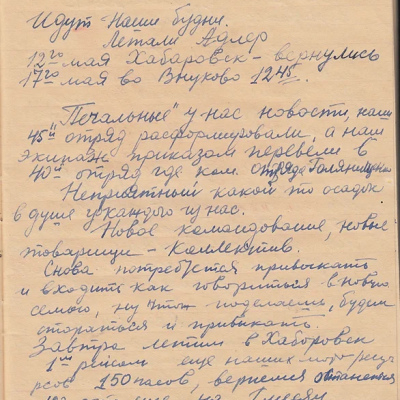 Идут наши будни.
Летали Адлер
12го мая Хабаровск - вернулись
17го мая во Внуково 1245.
"Печальные" у нас новости, наш
45й отряд расформировали, а наш
экипаж приказом перевели в
40й отряд где ком. отряда
Неприятный какой то осадок
в душе у каждого из нас.
Новое командование, новые
товарищи - коллектив.
Снова потребуется привыкать
и входить как говориться в новую
семью, ну что ж поделаешь, будем
стараться и привыкать.
Завтра летим в Хабаровск
1м рейсом еще наших мото ресу
рсов 150 часов, вернемся останется